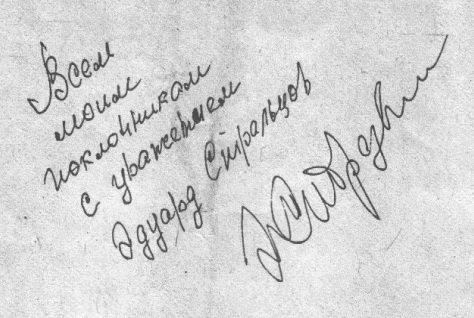 Всем
моим
поклонникам
с уважением
Эдуард Стрельцов